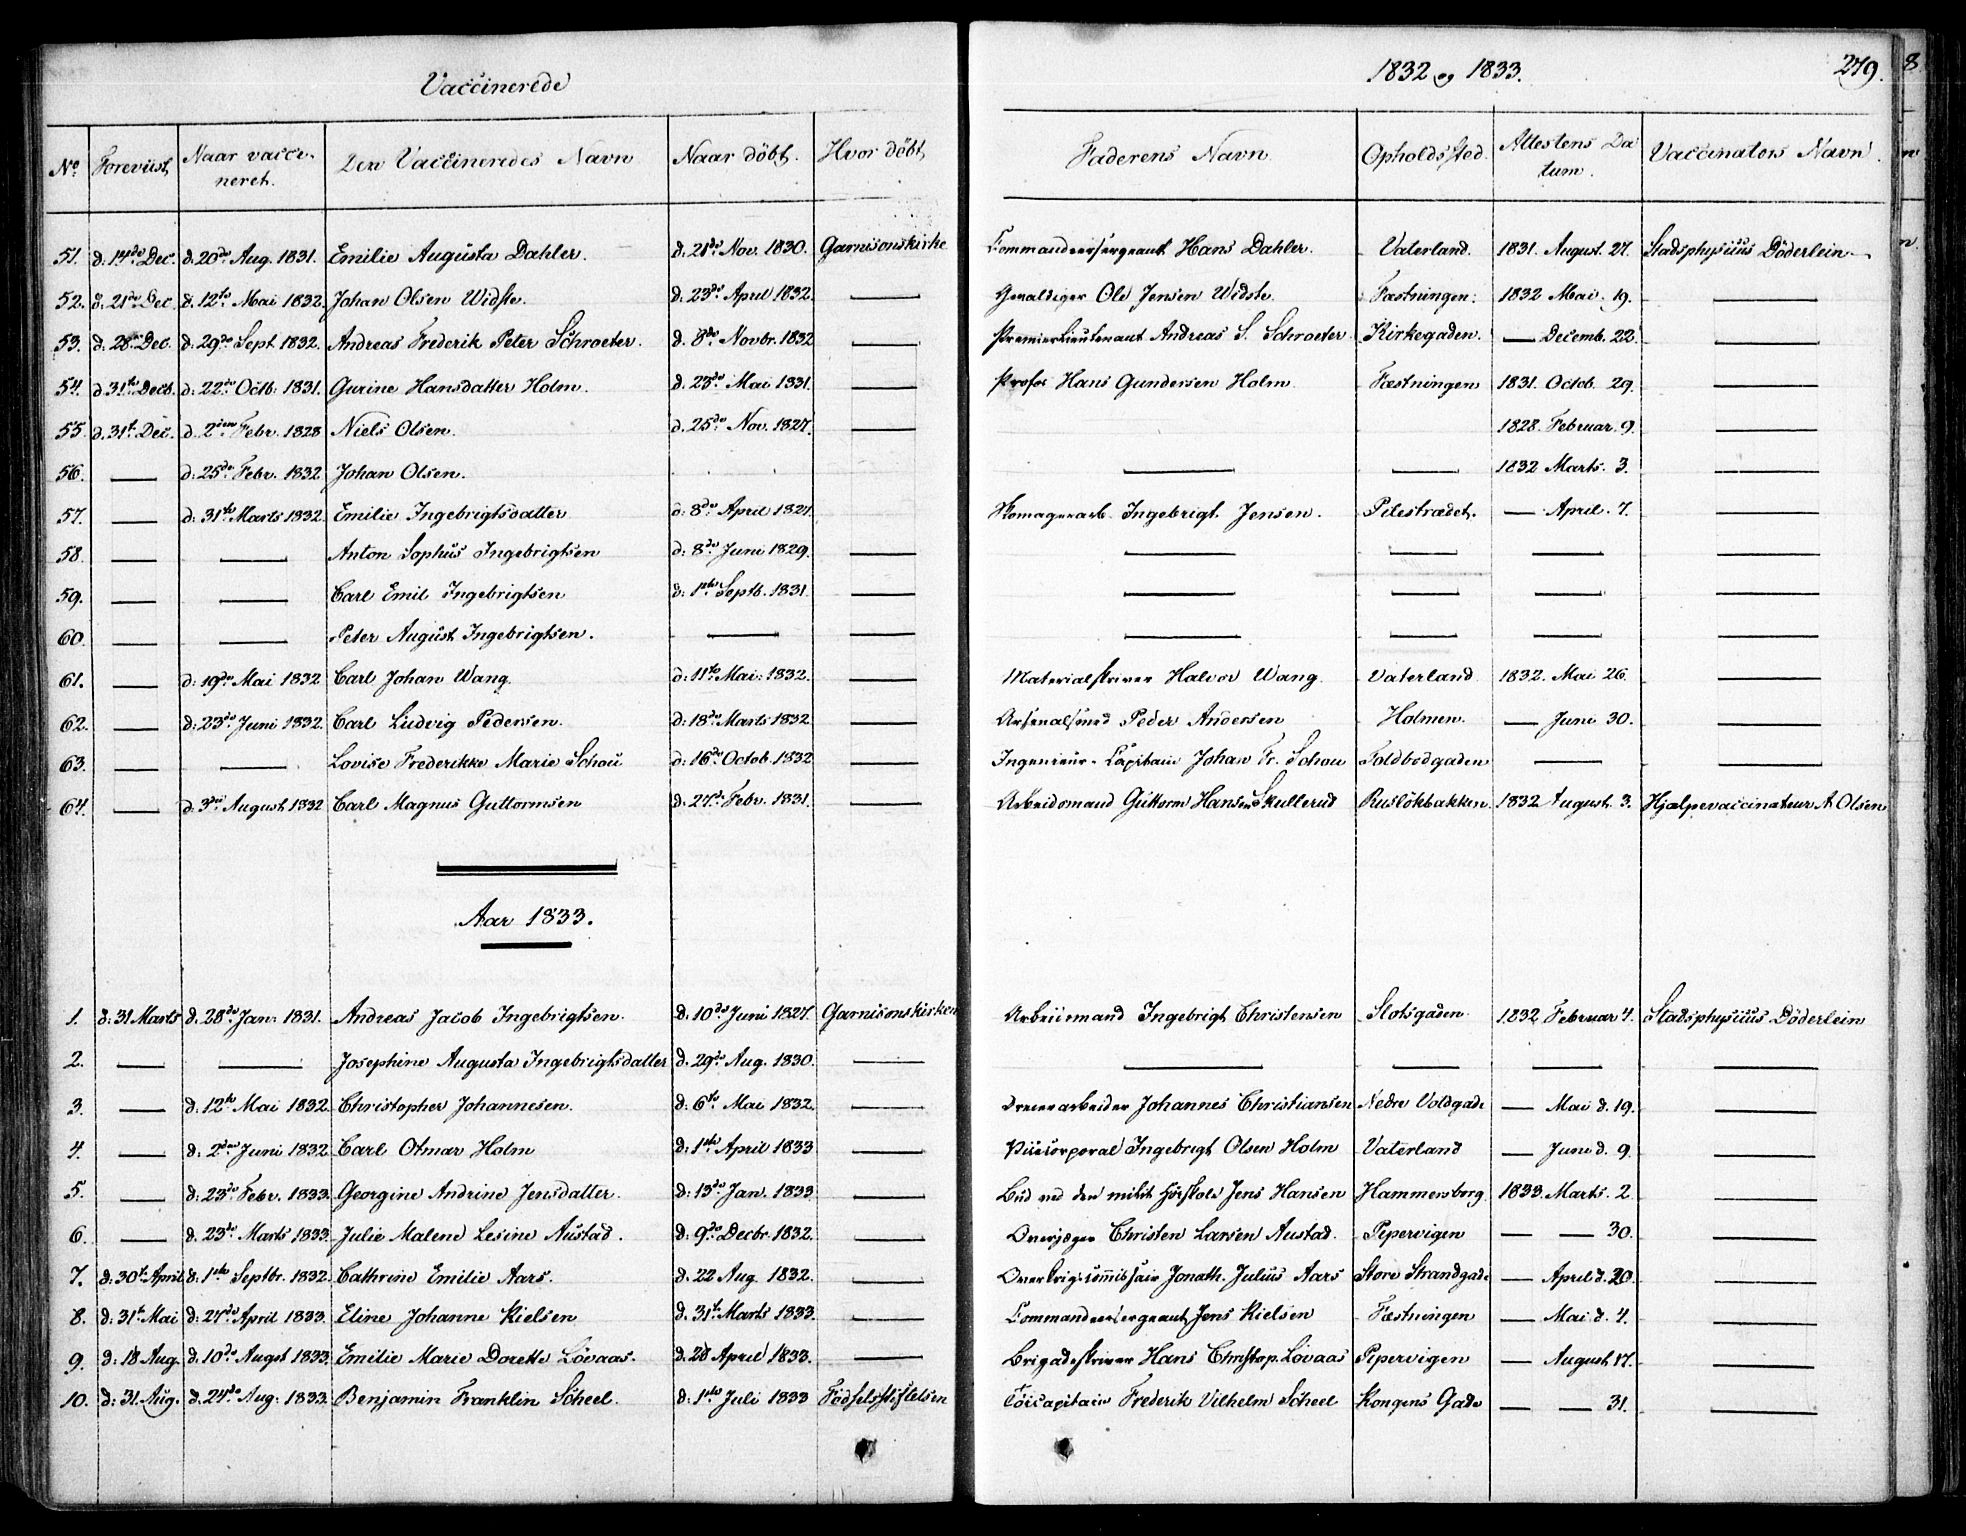 Vaccinerede
1832 og 1833. 279.
No. Foreviist Naar vacci- Den Vaccineredes Navn Naar döbt. Hvor döbt, Faderens Navn Opholdssted. Attestens Da- Vaccinators Navn.
neret. tum.
51. d. 14de Dec. d. 20de Aug. 1831. Emilie Augusta Dahler. d. 21de Nov. 1830. Garnisonskirke Commandeersergeant Hans Dahler. Vaterland. 1831. August. 27. Stadsphysicus Döderlein
52. d. 21de Dec. d. 12te Mai 1832. Johan Olsen Widste. d. 23de April 1832. — Gevaldiger Ole Jensen Widste. Fæstningen. 1832 Mai. 19. —
53. d. 28de Dec. d. 29de Sept 1832. Andreas Frederik Peter Schroeter. d. 8de Novbr. 1832 — Premierlieutenant Andreas S. Schroeter Kirkegaden. — Decemb. 22. —
54. d. 31te Decb. d. 22de Octb. 1831. Gurine Hansdatter Holm. d. 23de Mai 1831. — Profos Hans Gundersen Holm Fæstningen 1831. Octob. 29. —
55. d. 31te Dec. d. 2den Febr. 1828 Niels Olsen. d. 25de Nov. 1827. — 1828. Februar. 9. —
56. — d. 25de Febr. 1832 Johan Olsen. — — 1832 Marts. 3. —
57. — d. 31te Marts 1832. Emilie Ingebrigtsdatter d. 8de April 1827. — Skomagerarb. Ingebrigt Jensen. Pilestrædet. — April. 7. —
58. — — Anton Sophus Ingebrigtsen d. 8de Juni 1829. — — — — —
59. — — Carl Emil Ingebrigtsen d: 1ste Septb. 1831. — — — — —
60. — — Peter August Ingebrigtsen. — — — — — —
61. — d: 19de Mai 1832 Carl Johan Wang. d: 11te Mai: 1832. — Materialskriver Halvor Wang. Vaterland 1832. Mai 26. —
62. — d: 23de Juni 1832. Carl Ludvig Pedersen. d: 18de Marts 1832 — Arsenalsmed Peder Andersen Holmen. — Juni 30. —
63. — — Lovise Frederikke Marie Schou d: 16de Octob. 1832 — Ingenieur-Capitain Johan Fr. Schou Toldbodgaden — —
64. — d. 3die August 1832 Carl Magnus Guttormsen d. 27de Febr. 1831. — Arbeidsmand Guttorm Hansen Skullerud Ruslökbakken. 1832 August. 3. Hjælpevaccinateur A Olsen
Aar 1833.
1. d: 31 Marts d. 28de Jan. 1831. Andreas Jacob Ingebrigtsen. d: 10de Juni 1827. Garnisonskirken Arbeidsmand Ingebrigt Christensen Slotsgaden. 1832 Februar 4. Stadsphysicus Döderlein
2. — — Josephine Augusta Ingebrigtsdatter d. 29de Aug. 1830. — — — — —
3. — d: 12te Mai 1832 Christopher Johannesen. d: 6te Mai 1832. — Johannes Christiansen Nedre Voldgade — Mai d. 19. —
4. — d. 2den Juni 1832 Carl Otmar Holm d: 1ste April 1833 — Vicecorporal Ingebregt Olsen Holm Vaterland — Juni d. 9. —
5. — d: 23de Febr. 1833. Georgine Andrine Jensdatter. d: 13de Jan. 1833 — Bud ved den milit Höiskole Jens Hansen Hammersborg. 1833. Marts. 2 —
6. — d. 23de Marts 1833. Julie Malene Lesine Austad. d: 9de Decbr. 1832. — Overjæger Christen Larsen Austad. Pepervigen — — 30. —
7. d: 30te April d: 1ste Septbr. 1832. Cathrine Emilie Aars. d: 22 Aug. 1832. — Overkrigscommissair Jonath. Julius Aars Store Strandgade — April d. 20. —
8. d: 31te Mai d: 27de April 1833. Eline Johanne Kielsen d. 31te Marts 1833. — Commandeersergeant Jens Kielsen Fæstningen — Mai d. 4. —
9. d: 18 Aug. d: 10de Augst 1833. Emilie Marie Dorette Lövaas. d. 28 April 1833. — Brigadeskriver Hans Christop. Lövaas Pepervigen — August 17. —
10. d: 31. Aug. d. 24de Aug: 1833. Benjamin Franklin Scheel. d: 1ste Juli 1833 Födselsstiftelsen Töicapitain Frederik Vilhelm Scheel Kongens Gade — — 31. —